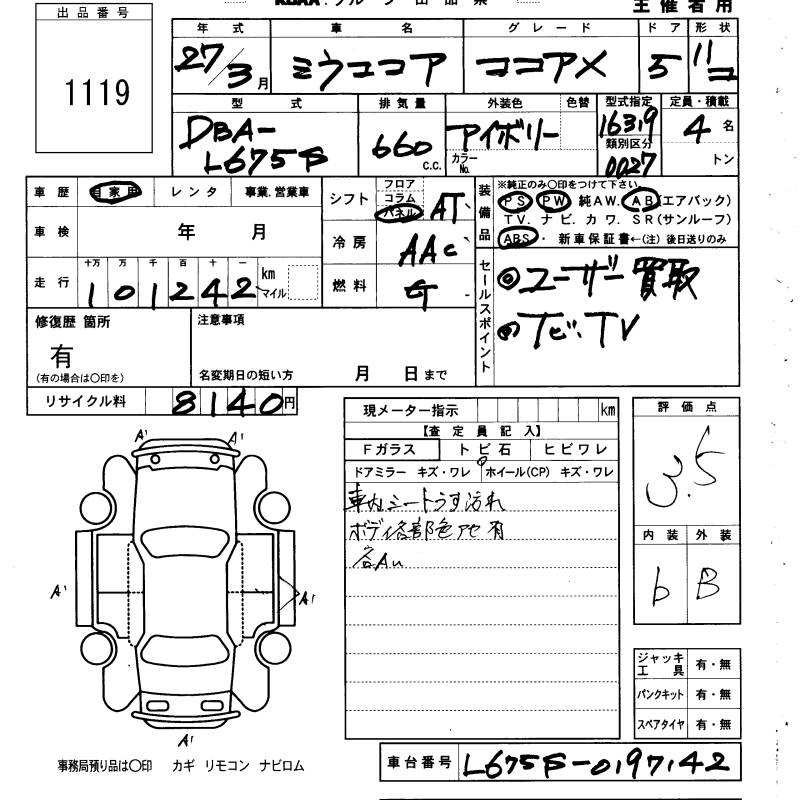 出品番号
1119
主催者用
年式 車名 グレード ドア 形状
27/3月 ミラココア ココアX 5 11コ
型式 排気量 外装色 色替 型式指定 定員・積載
DBA-L675S 660 C.C. アイボリー カラーNo. 16319 4名
類別区分
0027 トン
車歴 自家用 レンタ 事業.営業車
車検 年 月
走行 十万 万 千 百 十 一
101242 km マイル
シフト フロア コラム パネル AT
冷房 AAC
燃料 G
装備品 ※純正のみ〇印をつけて下さい。
PS PW 純AW. AB(エアバック)
TV. ナビ. カワ. SR(サンルーフ)
ABS・ 新車保証書←(注) 後日送りのみ
セールスポイント
◎ユーザー買取
◎ナビ.TV
修復歴 箇所 注意事項
有
(有の場合は〇印を) 名変期日の短い方 月 日まで
リサイクル料 8140円
現メーター指示 km
【査定員記入】
Fガラス トビ石 ヒビワレ
ドアミラー キズ・ワレ ホイール(CP) キズ・ワレ
車内シートうす汚れ
ボディ各部色アセ有
各Au
評価点
3.5
内装 外装
b B
A' A'
A' A'
A'
ジャッキ工具 有・無
パンクキット 有・無
スペアタイヤ 有・無
事務局預り品は〇印 カギ リモコン ナビロム
車台番号 L675S-0197142